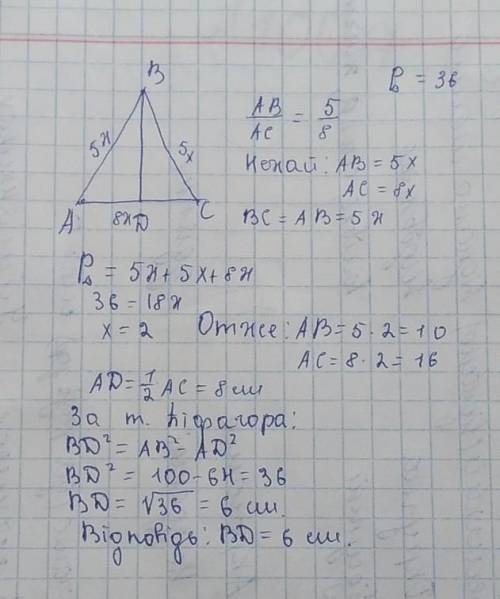 P△ = 36
B
AB/AC = 5/8
5x 5x
Нехай: AB = 5x
AC = 8x
A 8x D C
BC = AB = 5x
P△ = 5x + 5x + 8x
36 = 18x
x = 2 Отже: AB = 5 · 2 = 10
AC = 8 · 2 = 16
AD = 1/2 AC = 8 см
За т. Піфагора:
BD² = AB² - AD²
BD² = 100 - 64 = 36
BD = √36 = 6 см.
Відповідь: BD = 6 см.